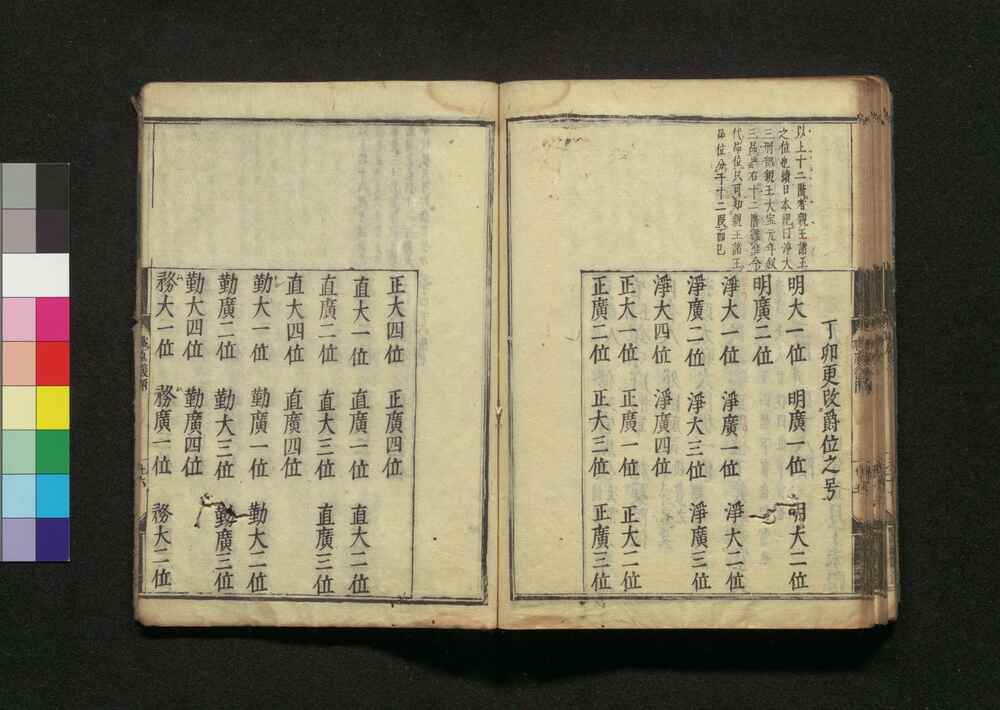 以上十二階者親王諸王
之位也續日本紀曰淨大
三刑部親王大宝元年叙
三品
代品位只可知親王諸王
品位分于十二
丁卯更改爵位之号
明大一位 明廣一位 明大二位
明廣二位
淨大一位 淨廣一位 淨大二位
淨廣二位 淨大三位 淨廣三位
淨大四位 淨廣四位
正大一位 正廣一位 正大二位
正廣二位 正大三位 正廣三位
正大四位 正廣四位
直大一位 直廣一位 直大二位
直廣二位 直大三位 直廣三位
直大四位 直廣四位
勤大一位 勤廣一位 勤大二位
勤廣二位 勤大三位 勤廣三位
勤大四位 勤廣四位
務大一位 務廣一位 務大二位